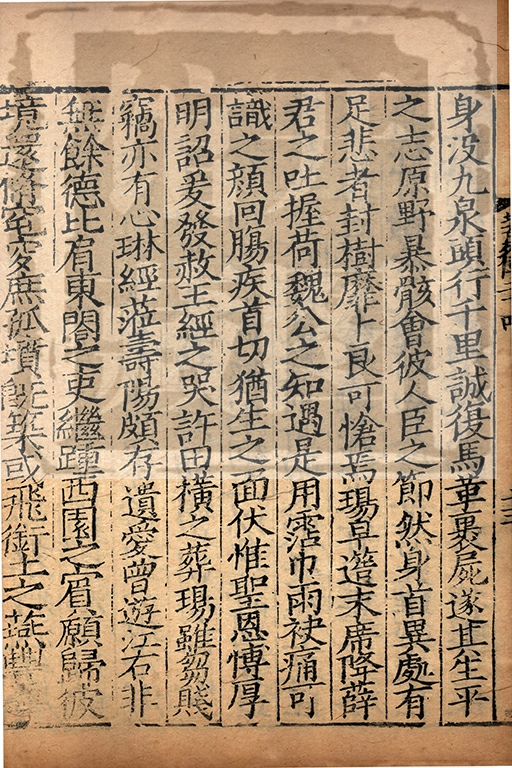 身没九泉頭行千里誠復馬革裹屍遂其生平
之志原野暴骸會彼人臣之節然身首異處有
足悲者封樹靡卜良可愴焉瑒早造末席降薛
君之吐握荷魏公之知遇是用霑巾雨袂痛可
識之顔回腸疾首切猶生之面伏惟聖恩慱厚
明詔爰發赦王經之哭許田橫之葬瑒雖芻賤
竊亦有心琳經蒞壽陽頗存遺愛曾遊江右非
無餘德比肩東閤之吏繼踵西園之賓願歸彼
境還脩窀穸庶孤墳旣築或飛銜土之鷰